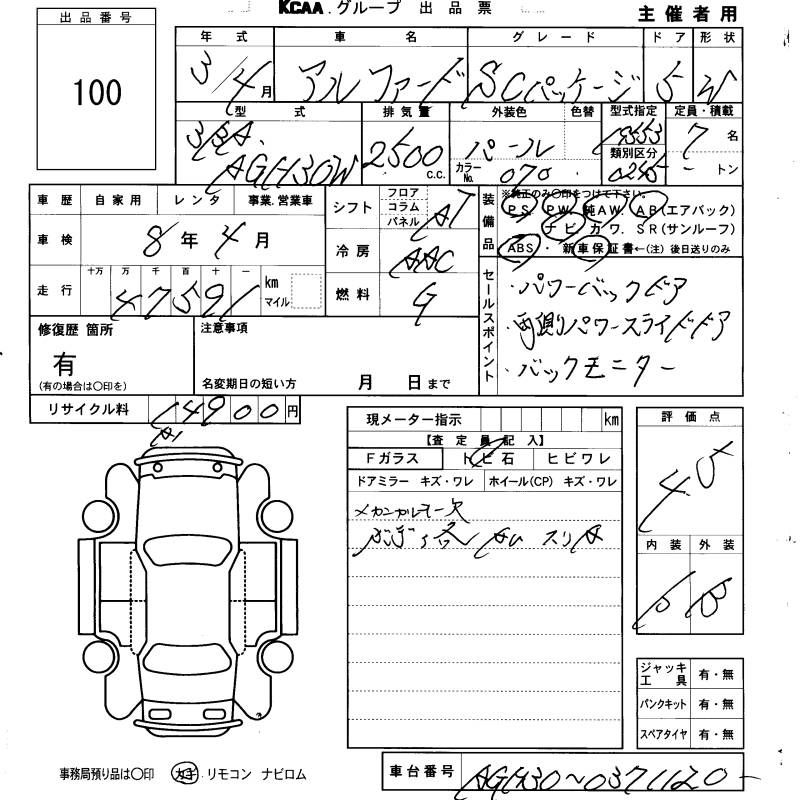 KCAA.グループ 出品票 主催者用
出品番号
100
年式 車名 グレード ドア 形状
3/4月 アルファード SCパッケージ 5 W
型式 排気量 外装色 色替 型式指定 定員・積載
3BA. AGH30W 2500 c.c. パール カラーNo. 070 19353 7名
類別区分 0245 - トン
車歴 自家用 レンタ 事業.営業車
車検 8年4月
走行 十万 万 千 百 十 一 km マイル
47591
シフト フロア コラム パネル AT
冷房 AAC
燃料 G
装備品 ※純正のみ〇印をつけて下さい。
PS. PW. 純AW. AB(エアバック)
ナビ カワ. SR(サンルーフ)
ABS・ 新車保証書←(注)後日送りのみ
セールスポイント
・パワーバックドア
・両側パワースライドドア
・バックモニター
修復歴 箇所 注意事項
有
(有の場合は〇印を) 名変期日の短い方 月 日まで
リサイクル料 14900円
A1
現メーター指示 km
【査定員記入】
Fガラス トビ石 ヒビワレ
ドアミラー キズ・ワレ ホイール(CP) キズ・ワレ
スリA
評価点
4.5
内装 外装
B B
ジャッキ工具 有・無
パンクキット 有・無
スペアタイヤ 有・無
事務局預り品は〇印 カギ.リモコン ナビロム
車台番号 AGH30〜0371120-